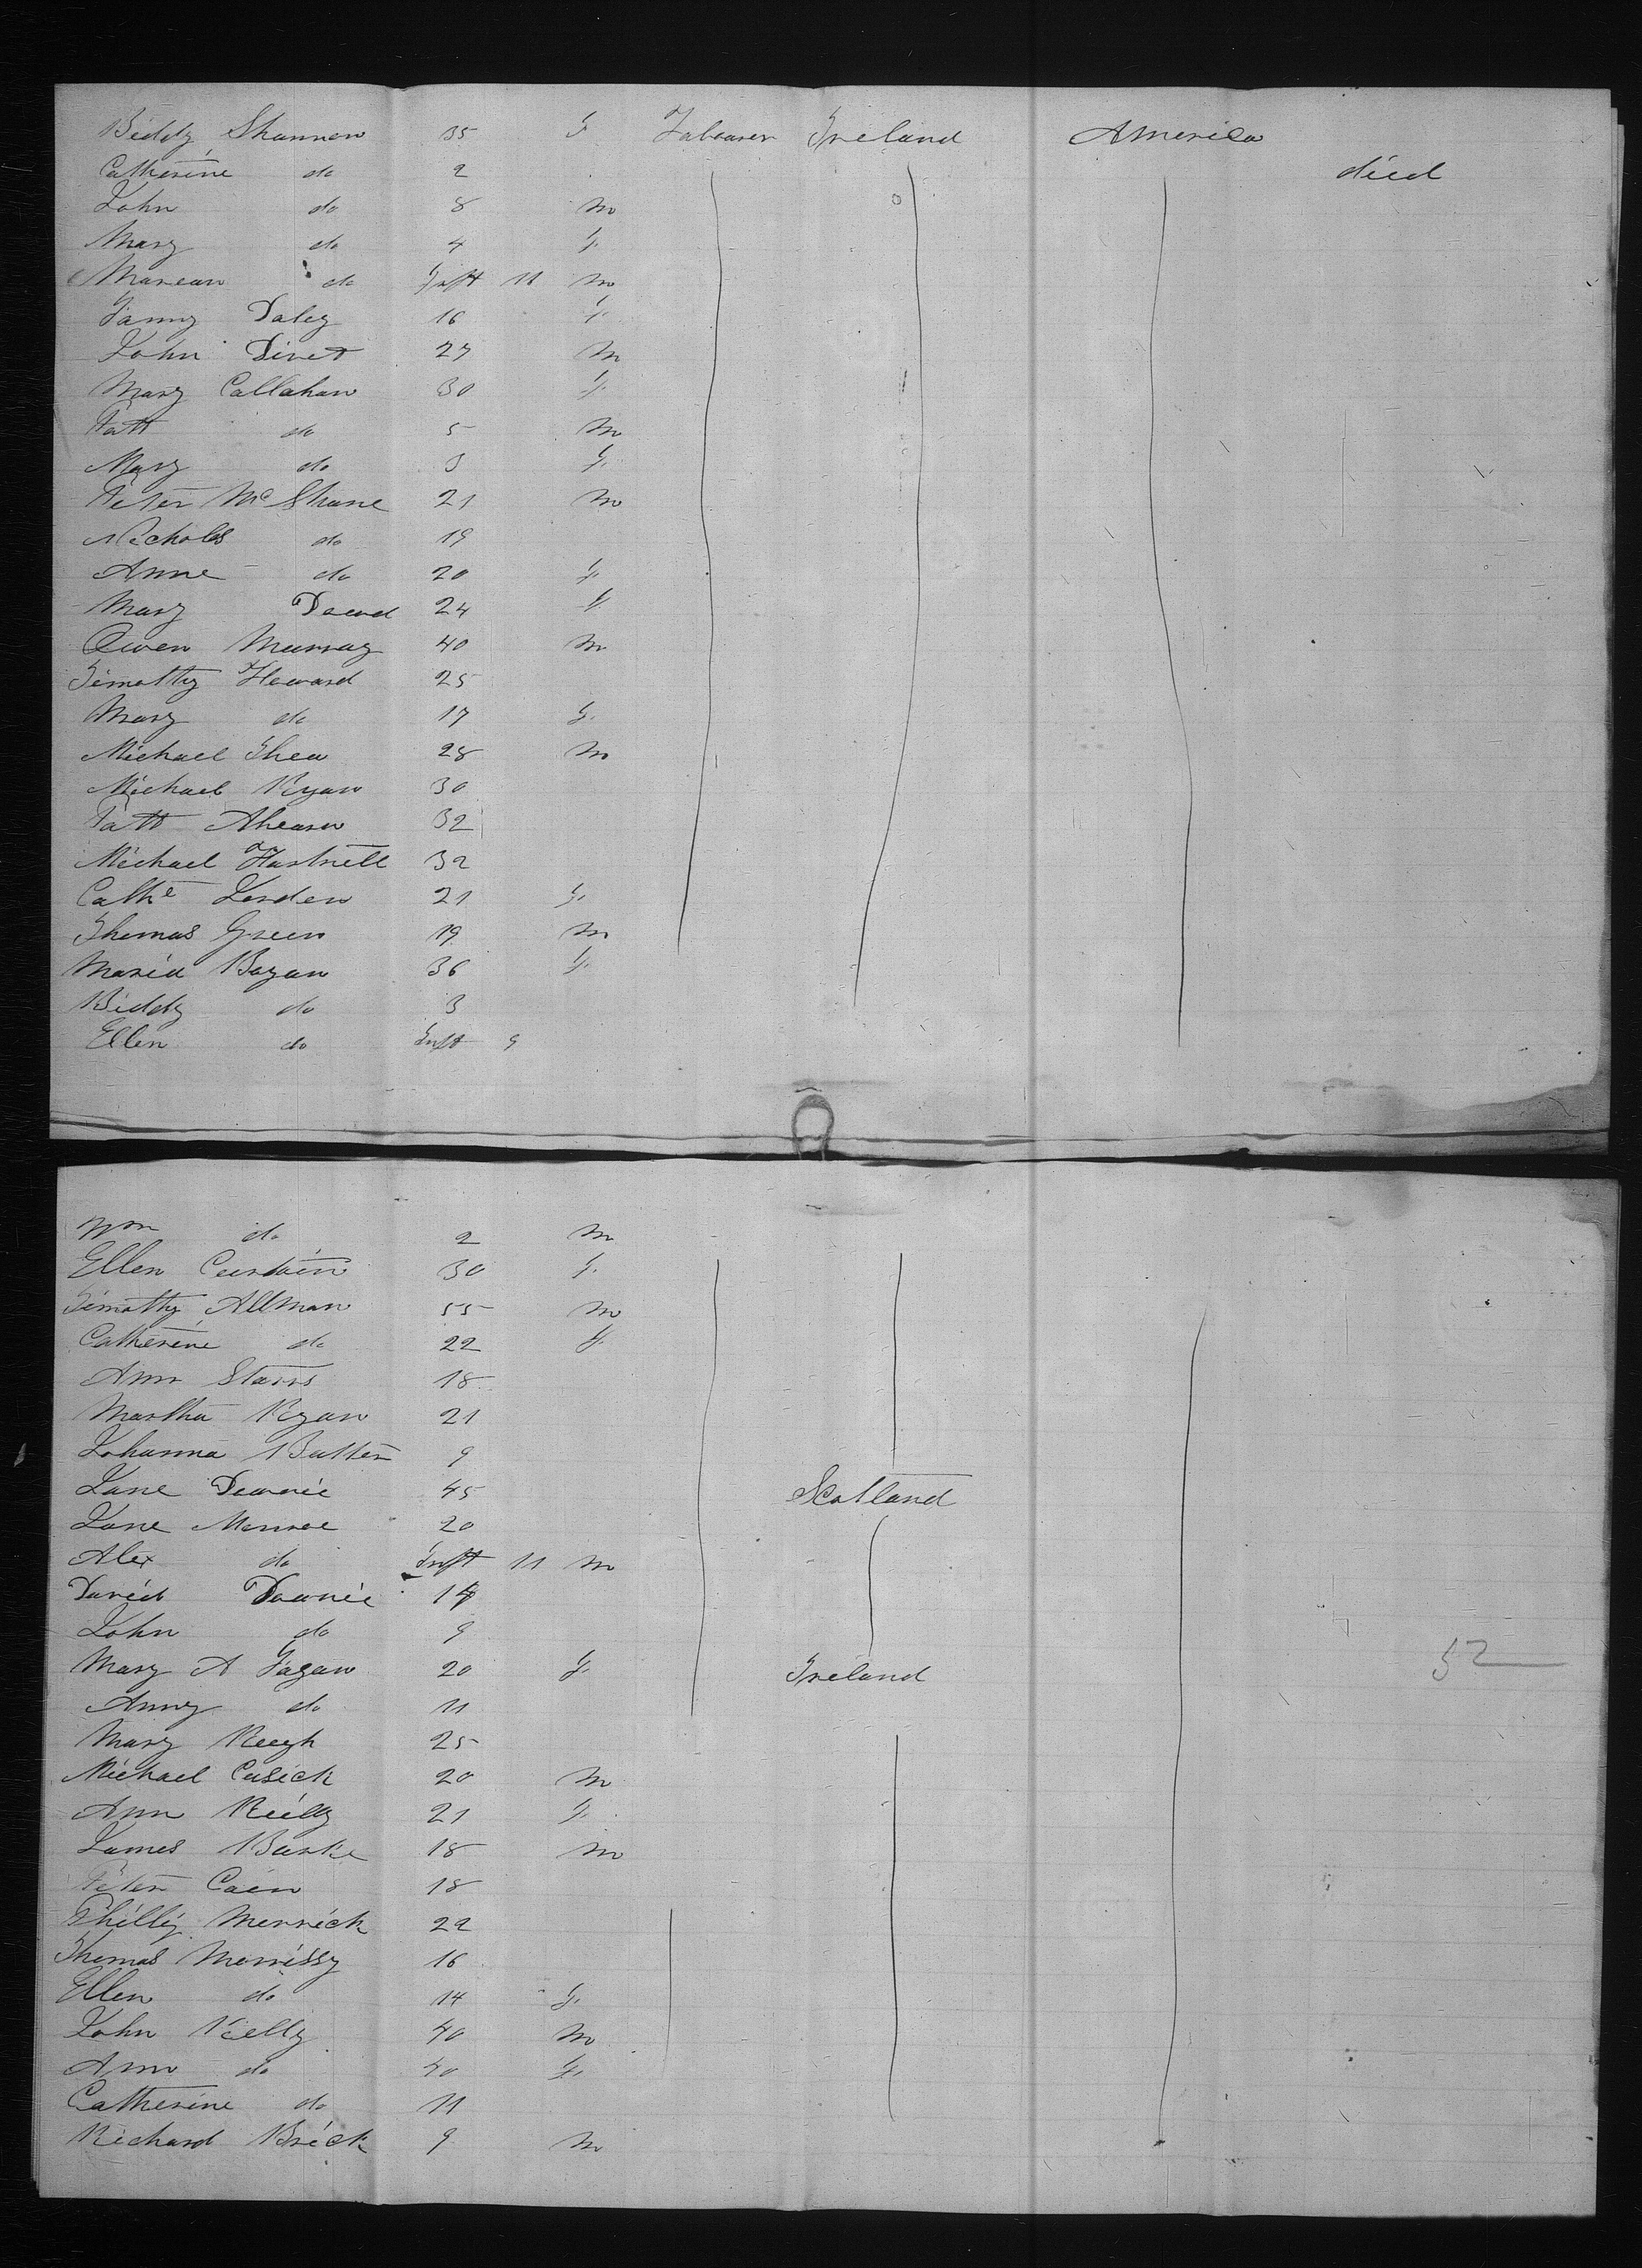 Biddy Shannon 35 F Labourer Ireland America
Catherine do 2 died
John do 8 M
Mary do 4 F.
do Inft 11 M
Fanny Daley 16 F.
John 27 M
Mary Callahan 30 F.
Patt do 5 M
Mary do 3 F.
Peter McShane 21 M
Nicholas do 19
Anne do 20 F.
Mary Dowd 24 F.
Owen Murray 40 M
Timothy Howard 25
Mary do 17 F.
Michael Shea 28 M
Michael Ryan 30
Patt Ahearn 32
Michael Hartnett 32
Cathe Lorden 21 F.
Thomas Green 19 M
Maria Bogan 36 F.
Biddy do 3
Ellen do Inft 9
Wm do 2 M
Ellen Curtain 30 F.
Timothy Allman 55 M
Catherine do 22 F.
Ann Stairs 18
Martha Ryan 21
Johanna Butter 9
Jane Downie 45 Scotland
Jane Monroe 20
Alex do Inft 11 M
David Downie 14
John do 9
Mary A Fagan 20 F. Ireland 52
Anny do 11
Mary Keegh 25
Michael Cusick 20 M
Ann Reilly 21 F.
James Burke 18 M
Peter Cain 18
Phillip Merrick 22
Thomas Morrissy 16
Ellen do 14 F.
John Kelly 40 M
Ann do 40 F.
Catherine do 11
Richard Brick 9 M